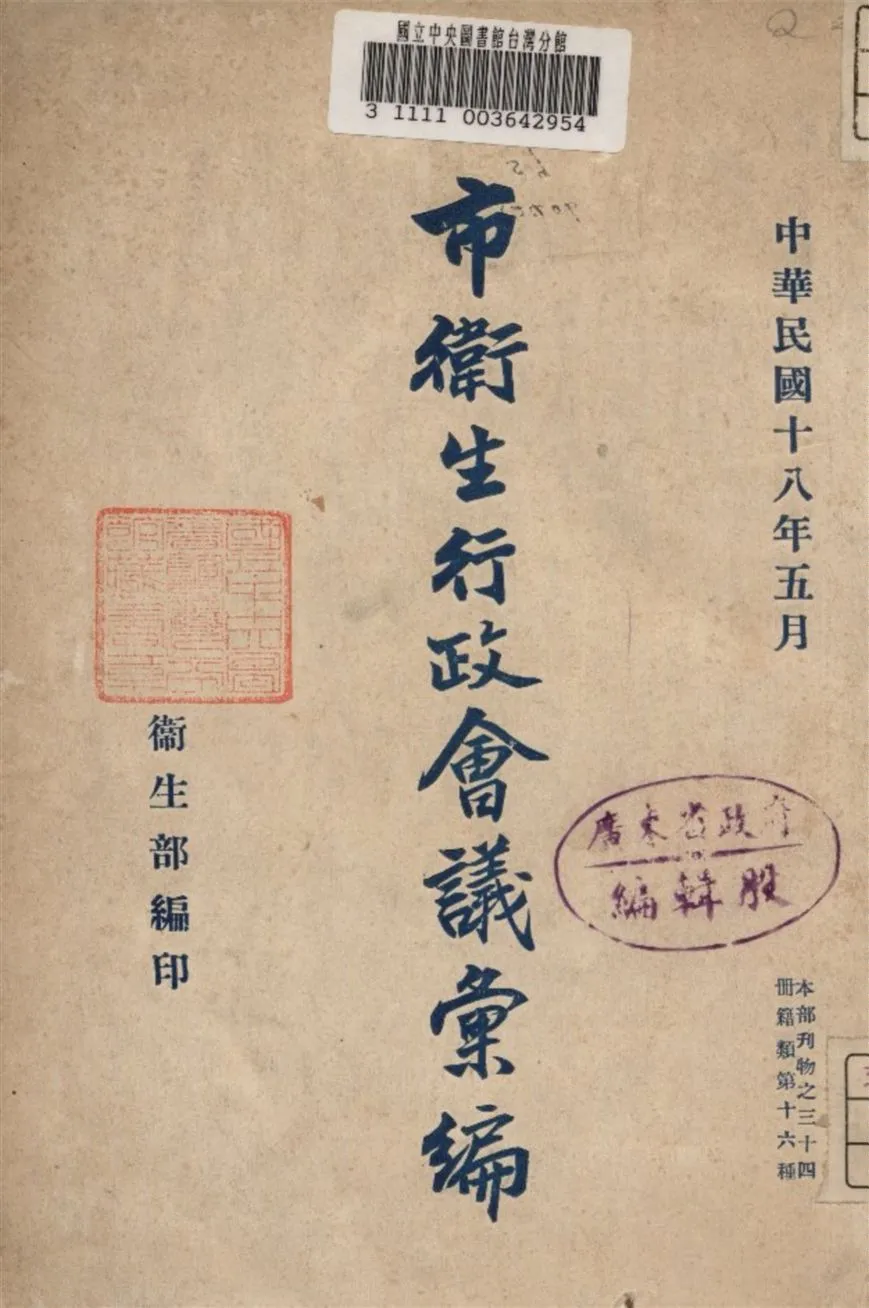 國立中央圖書館台灣分館
3 1111 003642954
中華民國十八年五月
市衛生行政會議彙編
衞生部編印
廣東省政府
編輯股
本部刊物之三十四
冊籍類第十六種